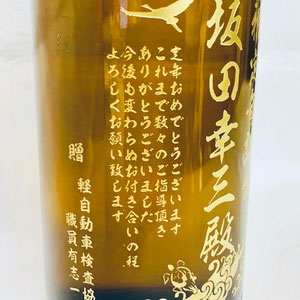 坂田幸三殿
定年おめでとうございます
これまで数々のご指導頂き
ありがとうございました
今後も変わらぬお付き合いの程
よろしくお願い致します
贈 軽自動車検査協
職員有志一